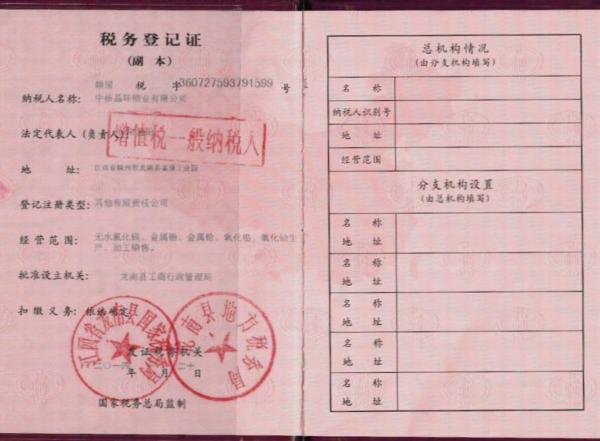 税务登记证
(副 本)
赣国 税 字360727593791599号
纳税人名称: 中标晶环锆业有限公司
法定代表人(负责人)
增值税一般纳税人
地 址: 江西省赣州市龙南县富康工业园
登记注册类型: 其他有限责任公司
经营范围: 无水氯化镁、金属锆、金属铪、氧化锆、氧化铪生
产、加工销售。
批准设立机关: 龙南县工商行政管理局
扣缴义务: 依法确定
江西省龙南县国家税务局
龙南县地方税务局
发证税务机关
二〇一四年 月二十日
国家税务总局监制
总机构情况
(由分支机构填写)
名 称
纳税人识别号
地 址
经营范围
分支机构设置
(由总机构填写)
名 称
地 址
名 称
地 址
名 称
地 址
名 称
地 址
名 称
地 址